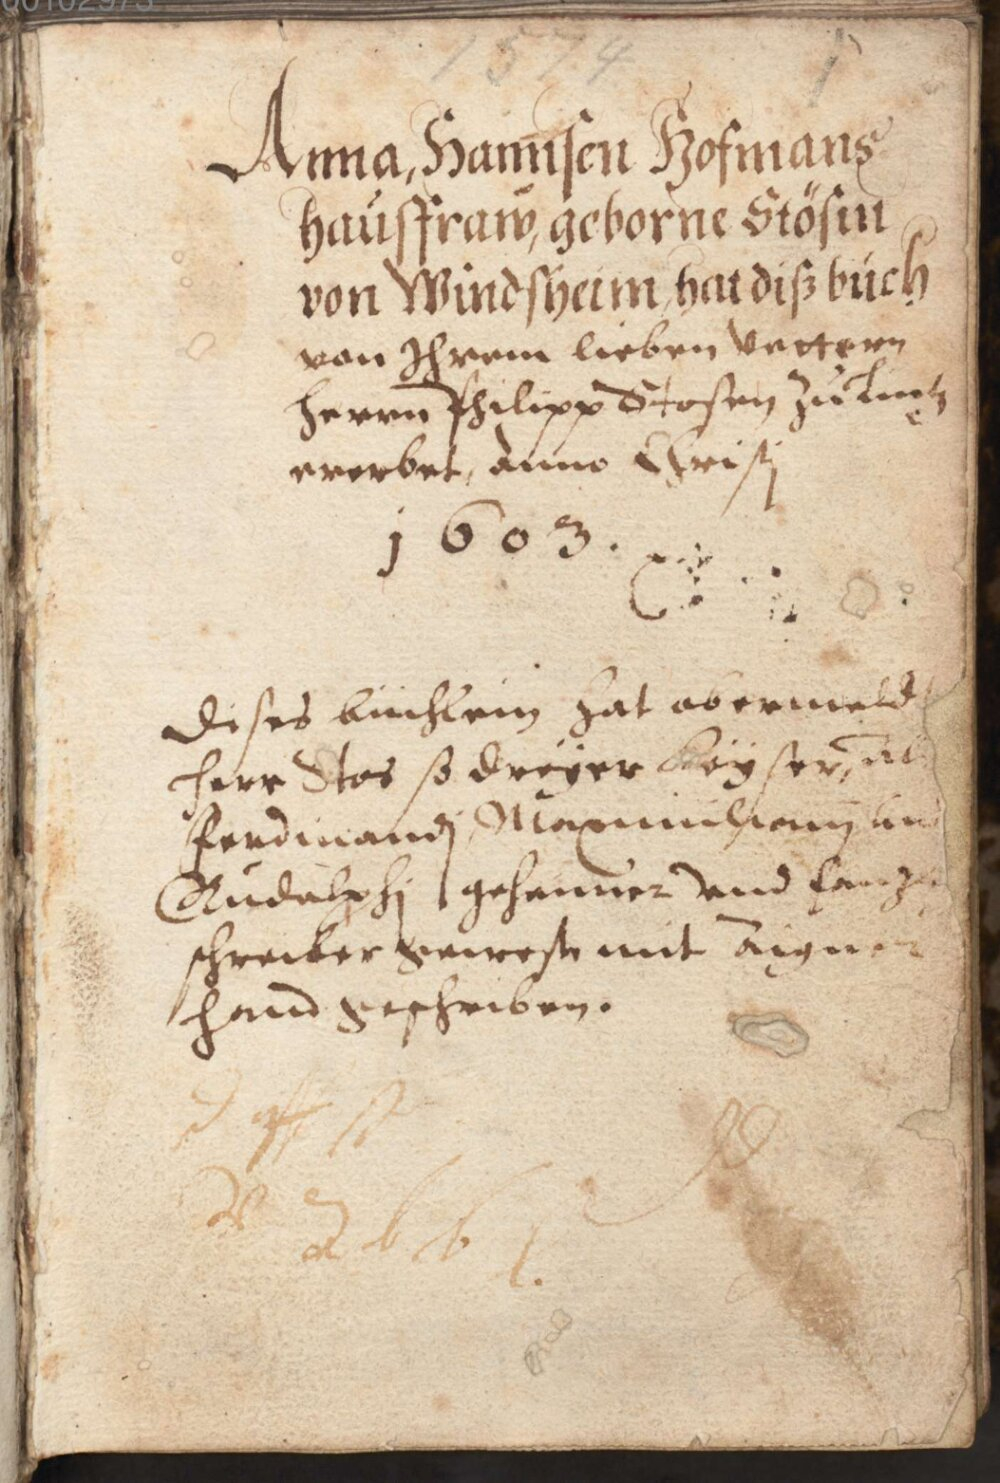 00102973
1574
1
Anna, Hannsen Hofmans
haußfraw, geborne Stösin
von Windsheim, hat diß buch
von Ihrem lieben Vettern
herrn Philipp Stosen zu Lintz
ererbet, Anno Christi
1603.
Dises büchlein hat obermeld
herr Stos so dreyer Keyser, al
Ferdinandj, Maximilianj un
Rudolphj geheimer vnd Canzl
schreiber gewest mit aigner
hand geschriben.